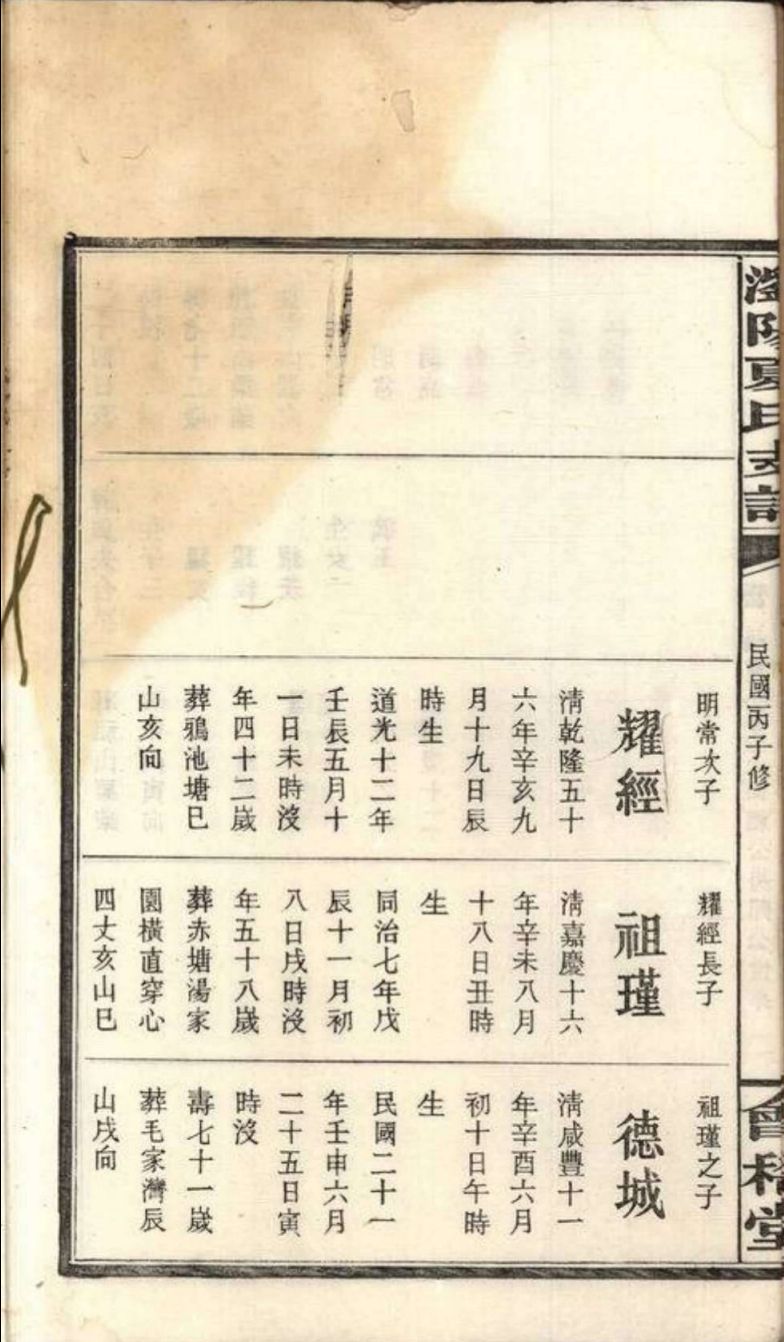 瀏陽夏氏支譜
民國丙子修
會稽堂
明常次子
耀經
清乾隆五十
六年辛亥九
月十九日辰
時生
道光十二年
壬辰五月十
一日未時沒
年四十二歲
葬鴉池塘巳
山亥向
耀經長子
祖瑾
清嘉慶十六
年辛未八月
十八日丑時
生
同治七年戊
辰十一月初
八日戌時沒
年五十八歲
葬赤塘湯家
園橫直穿心
四丈亥山巳
祖瑾之子
德城
清咸豐十一
年辛酉六月
初十日午時
生
民國二十一
年壬申六月
二十五日寅
時沒
壽七十一歲
葬毛家灣辰
山戌向